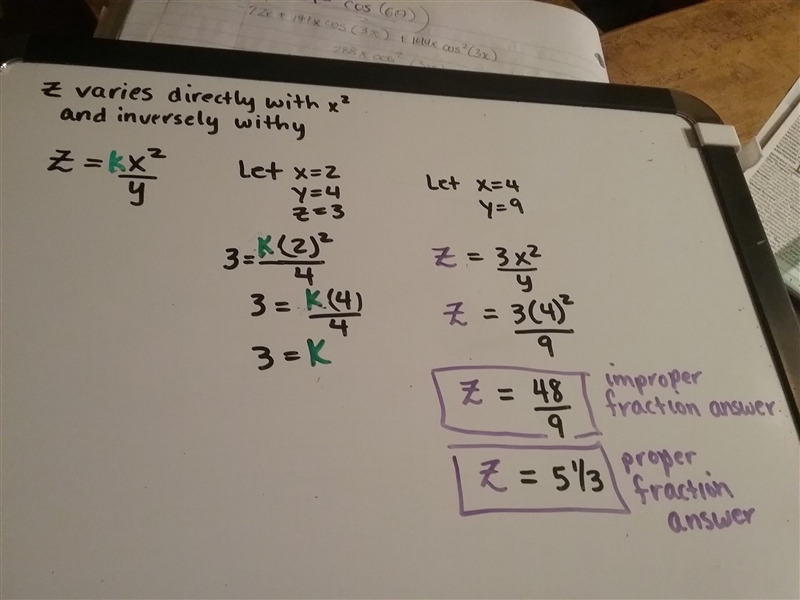 cos(
72x + 144x cos(3x) + 144x cos²(3x)
288x cos²
z varies directly with x²
and inversely with y
z = kx²/y
Let x=2
y=4
z=3
3 = k(2)²/4
3 = k(4)/4
3 = k
Let x=4
y=9
z = 3x²/y
z = 3(4)²/9
z = 48/9
improper
fraction answer
z = 5 1/3
proper
fraction
answer